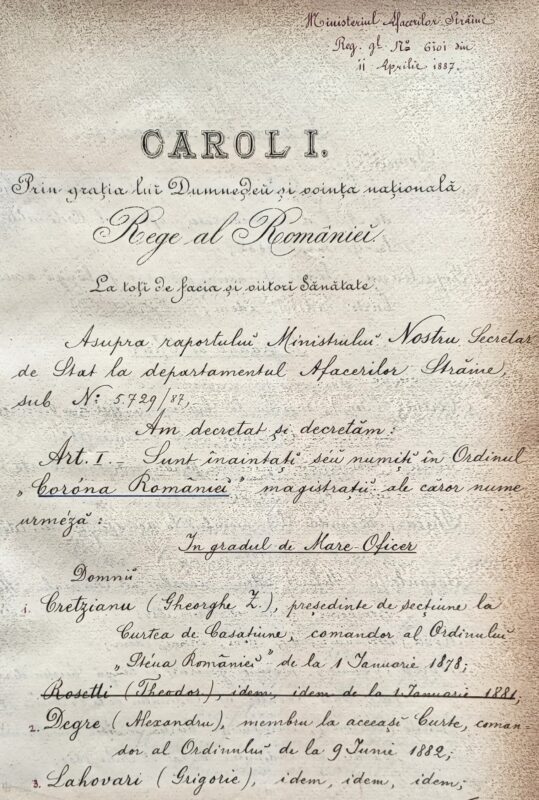 Ministeriul Afacerilor Străine
Reg. gl. No 6101 din
11 Aprilie 1887.
CAROL I.
Prin grația lui Dumnedeu și voința națională
Rege al României.
La toți de facia și viitori Sănătate.
Asupra raportuluĭ Ministruluĭ Nostru Secretar
de Stat la departamentul Afacerilor Străine,
sub No: 5729/87,
Am decretat și decretăm:
Art. I. – Sunt înaintați séu numiți în Ordinul
„Coróna Românieĭ" magistrațiĭ ale căror nume
urméză:
In gradul de Mare Oficer
Domniĭ
1. Cretzianu (Gheorghe Z.), președinte de secțiune la
Curtea de Casatiune, comandor al Ordinuluĭ
„Stéua Românieĭ" de la 1 Ianuarie 1878;
Rosetti (Theodor), idem, idem de la 1 Ianuarie 1881;
2. Degre (Alexandru), membru la aceeași Curte, coman-
dor al Ordinuluĭ de la 9 Iunie 1882;
3. Lahovari (Grigorie), idem, idem, idem;